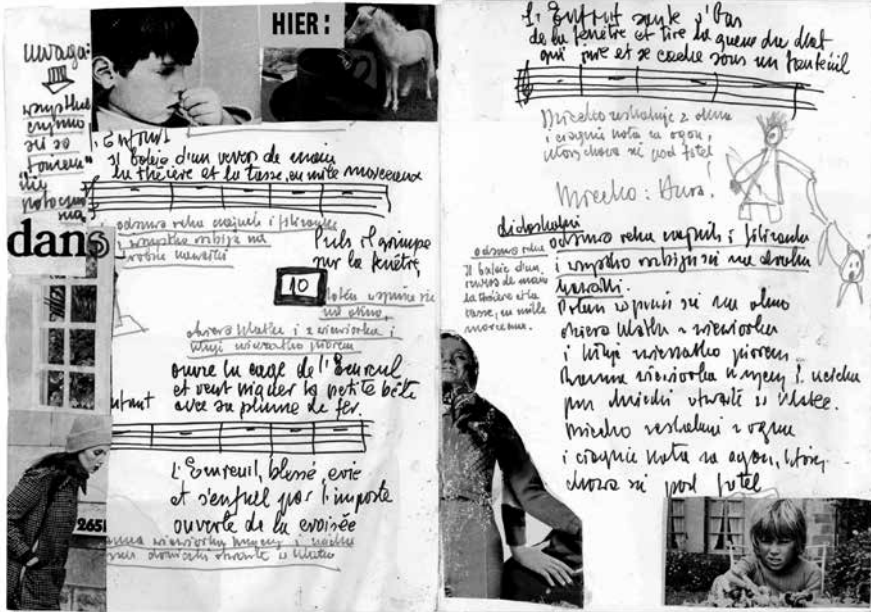 HIER:
uwaga:
wszystkie
L'Enfant
Il balaie d'un revers de main
la théière et la tasse, en mille morceaux
dans
odsuwa ręką czajnik i filiżankę
i wszystko rozbija na
drobne kawałki
Puis il grimpe
sur la fenêtre,
10
potem wspina się
na okno,
otwiera klatkę i z wiewiórką i
kłuje zwierzątko piórem
ouvre la cage de l'Écureuil
et veut piquer la petite bête
avec sa plume de fer.
nfant
L'Écureuil, blessé, crie
et s'enfuit par l'imposte
ouverte de la croisée
265
ranna wiewiórka krzyczy i ucieka
L'Enfant saute à bas
de la fenêtre et tire la queue du chat
qui jure et se cache sous un fauteuil
Dziecko zeskakuje z okna
i ciągnie kota za ogon,
który chowa się pod fotel
Dziecko: Hura!
didaskalia
odsuwa ręką
Il balaie d'un
revers de main
la théière et la
tasse, en mille
morceaux.
odsuwa ręką czajnik i filiżankę
i wszystko rozbija się na drobne
kawałki.
Potem wspina się na okno
otwiera klatkę z wiewiórką
i kłuje zwierzątko piórem.
Ranna wiewiórka krzyczy i ucieka
przez drzwiczki otwarte w klatce.
Dziecko zeskakuje z okna
i ciągnie kota za ogon, który
chowa się pod fotel